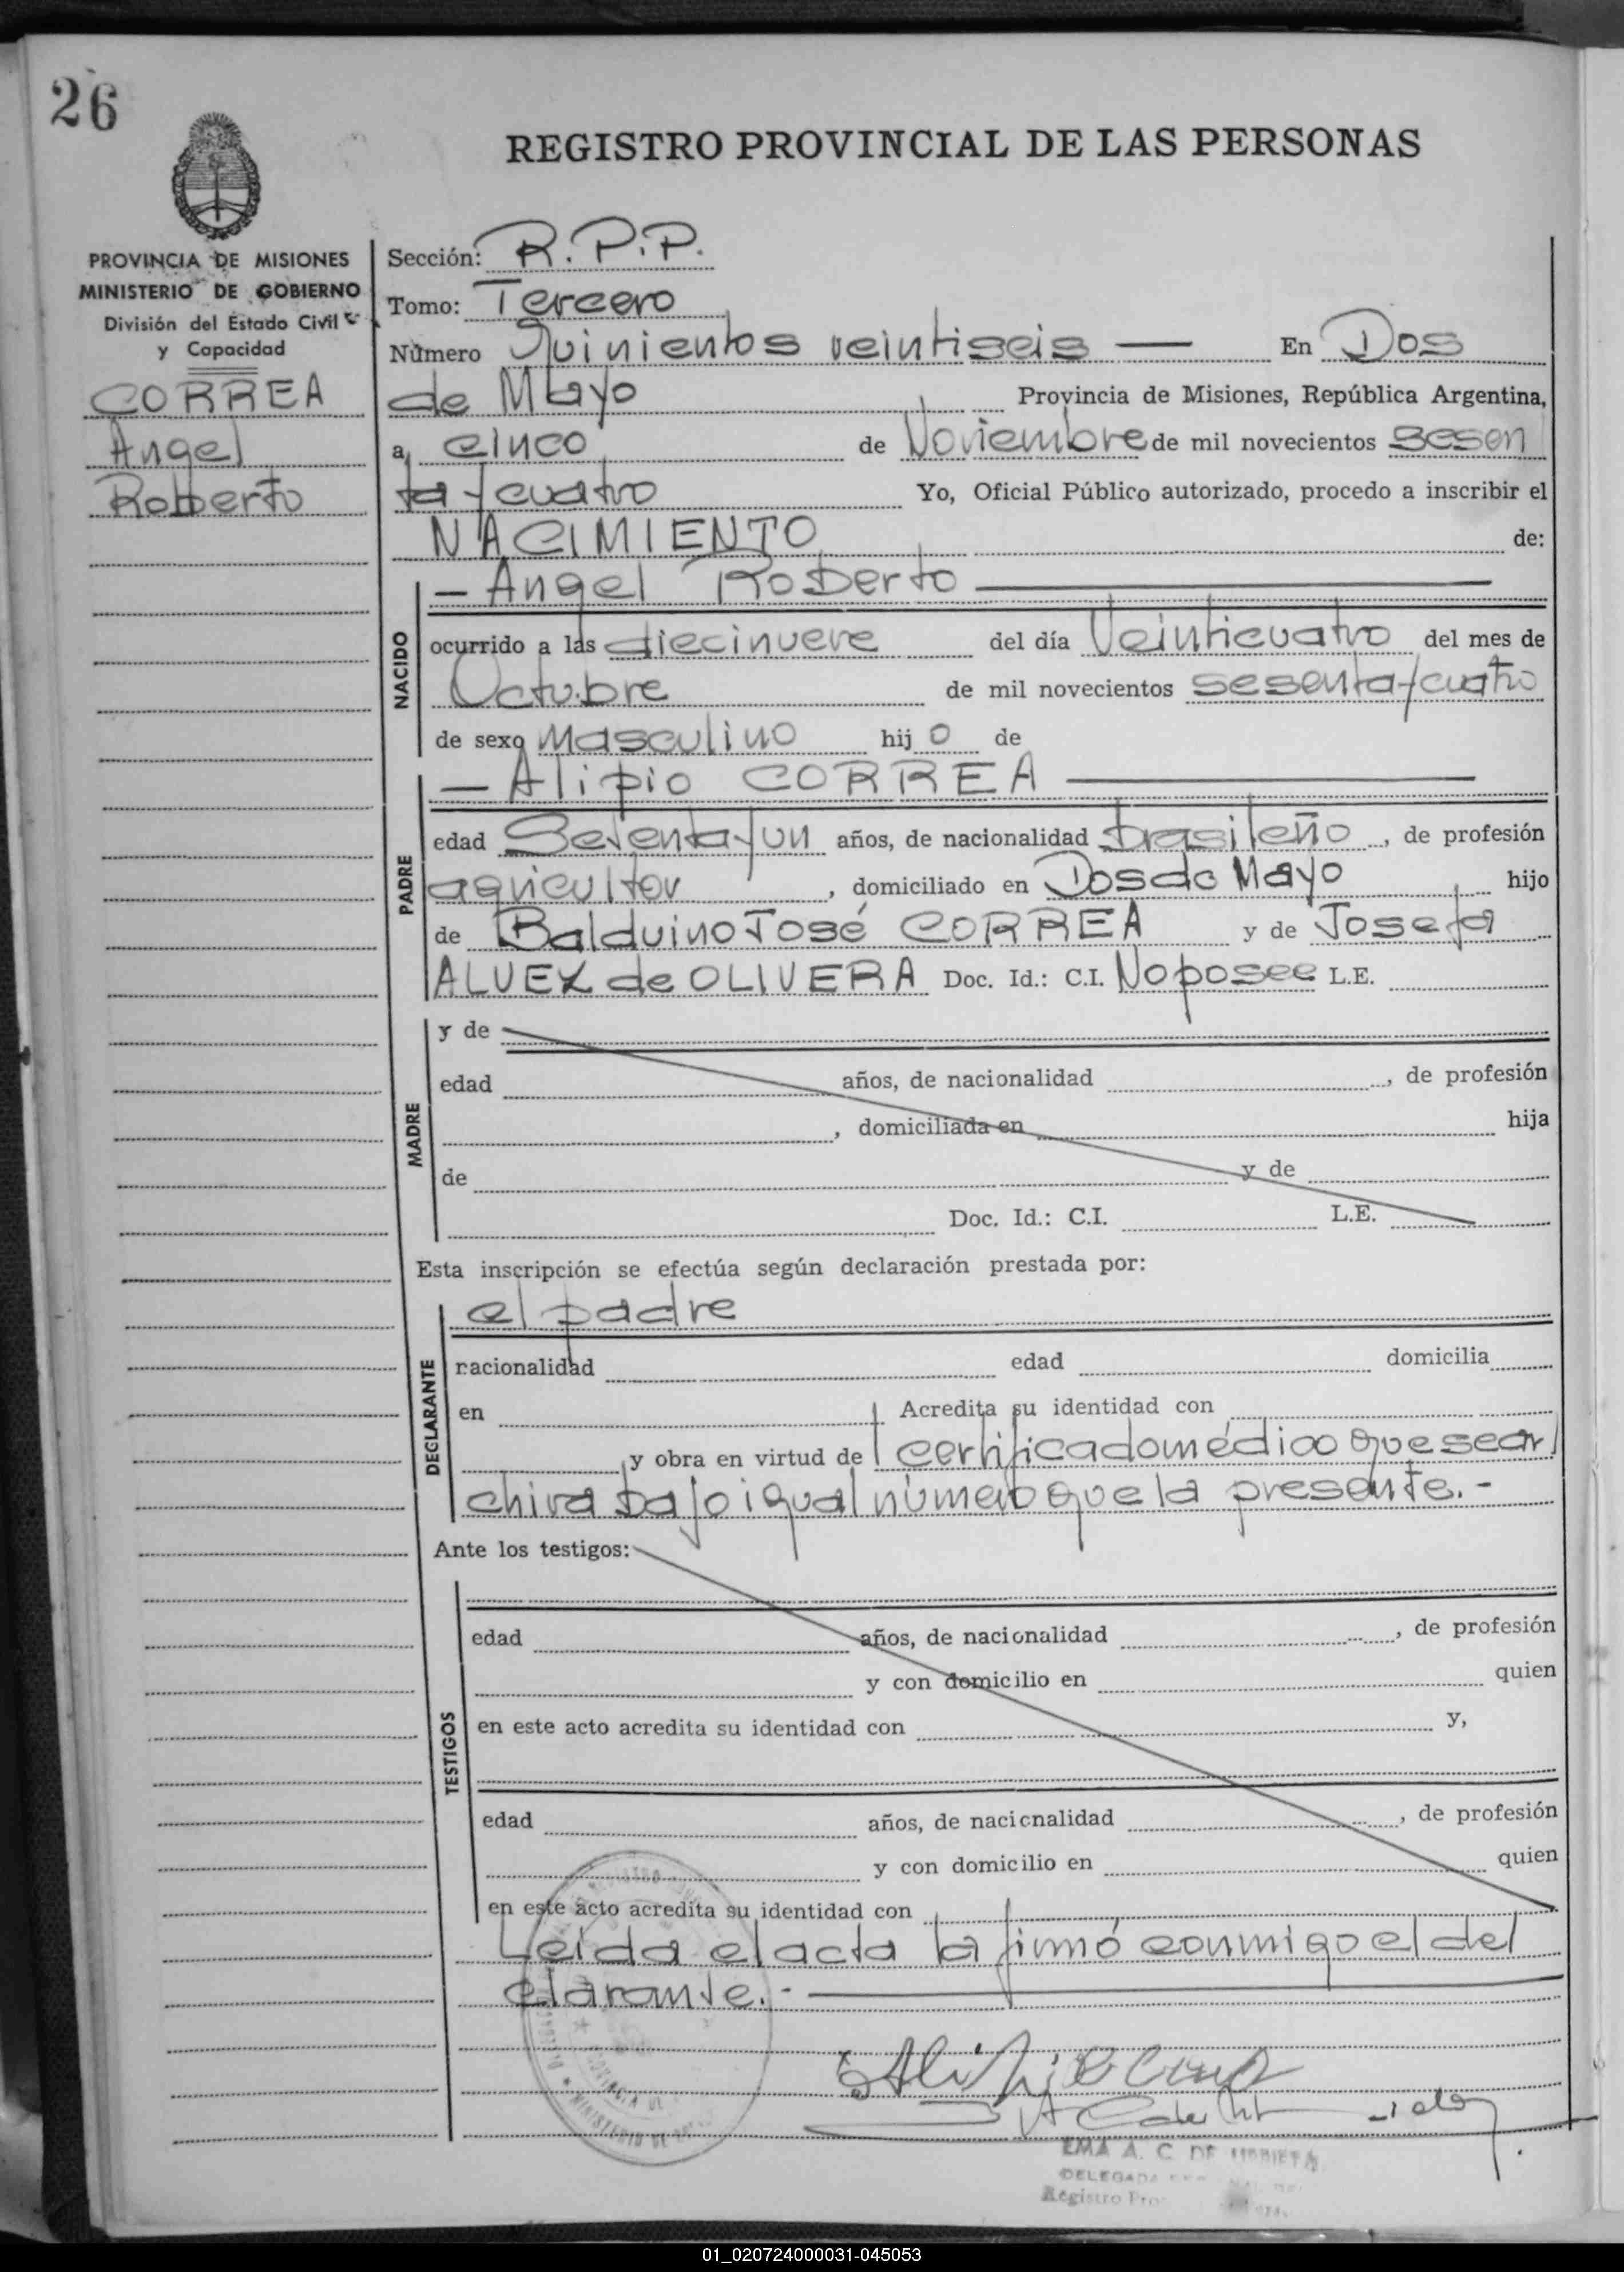 26
REGISTRO PROVINCIAL DE LAS PERSONAS
PROVINCIA DE MISIONES
MINISTERIO DE GOBIERNO
División del Estado Civil
y Capacidad
CORREA
Angel
Roberto
Sección: R.P.P.
Tomo: Tercero
Número Quinientos veintiseis — En Dos
de Mayo Provincia de Misiones, República Argentina,
a cinco de Noviembre de mil novecientos sesen
ta y cuatro Yo, Oficial Público autorizado, procedo a inscribir el
NACIMIENTO de:
— Angel Roberto —
NACIDO
ocurrido a las diecinueve del día Veinticuatro del mes de
Octubre de mil novecientos sesenta y cuatro
de sexo Masculino hijo de
— Alipio CORREA —
PADRE
edad Setenta y un años, de nacionalidad brasileño, de profesión
agricultor, domiciliado en Dos de Mayo hijo
de Balduino José CORREA y de Josefa
ALVEZ de OLIVERA Doc. Id.: C.I. No posee L.E.
MADRE
y de
edad años, de nacionalidad , de profesión
, domiciliada en hija
de y de
Doc. Id.: C.I. L.E.
Esta inscripción se efectúa según declaración prestada por:
DECLARANTE
el padre
nacionalidad edad domicilia
en Acredita su identidad con
y obra en virtud de certificado médico que se ar
chiva bajo igual número que la presente.-
Ante los testigos:
TESTIGOS
edad años, de nacionalidad , de profesión
y con domicilio en quien
en este acto acredita su identidad con y,
edad años, de nacionalidad , de profesión
y con domicilio en quien
en este acto acredita su identidad con
Leida el acta la firmó conmigo el del
clarante.-
EMA A. C. DE
DELEGADA
Registro
01_020724000031-045053